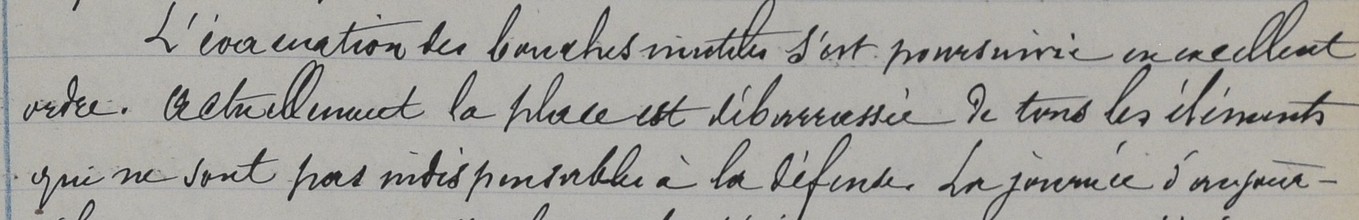 L'évacuation des bouches inutiles s'est poursuivie en excellent
ordre. Actuellement la place est débarrassée de tous les éléments
qui ne sont pas indispensables à la défense. La journée d'aujour-